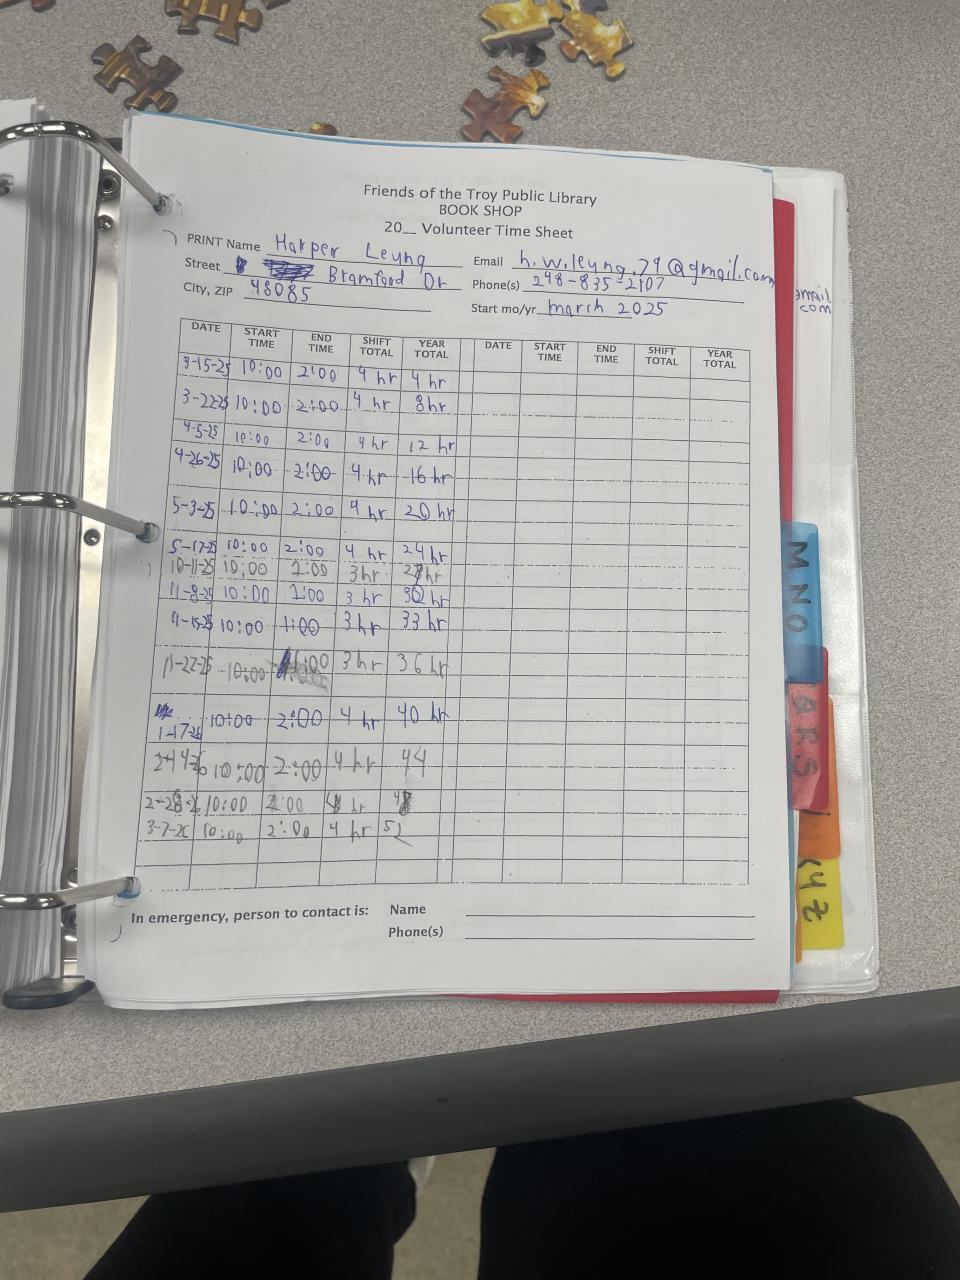 Friends of the Troy Public Library
BOOK SHOP
20__ Volunteer Time Sheet
PRINT Name Harper Leung
Email h.w.leung.79@gmail.com
Street Bramford Dr
Phone(s) 248-835-2107
City, ZIP 48085
Start mo/yr. march 2025
gmail.com
DATE START TIME END TIME SHIFT TOTAL YEAR TOTAL DATE START TIME END TIME SHIFT TOTAL YEAR TOTAL
3-15-25 10:00 2:00 4 hr 4 hr
3-22-25 10:00 2:00 4 hr 8hr
4-5-25 10:00 2:00 4 hr 12 hr
4-26-25 10:00 2:00 4 hr 16 hr
5-3-25 10:00 2:00 4 hr 20 hr
5-17-25 10:00 2:00 4 hr 24 hr
10-11-25 10:00 1:00 3hr hr
11-8-25 10:00 1:00 3 hr hr
11-15-25 10:00 1:00 3 hr 33 hr
11-22-25 10:00 1:00 3 hr 36 hr
1-17-26 10:00 2:00 4 hr 40 hr
2-14-26 10:00 2:00 4 hr 44
2-28-26 10:00 2:00 4 hr 48
3-7-26 10:00 2:00 4 hr 52
In emergency, person to contact is: Name
Phone(s)
MNO
QRS
XYZ